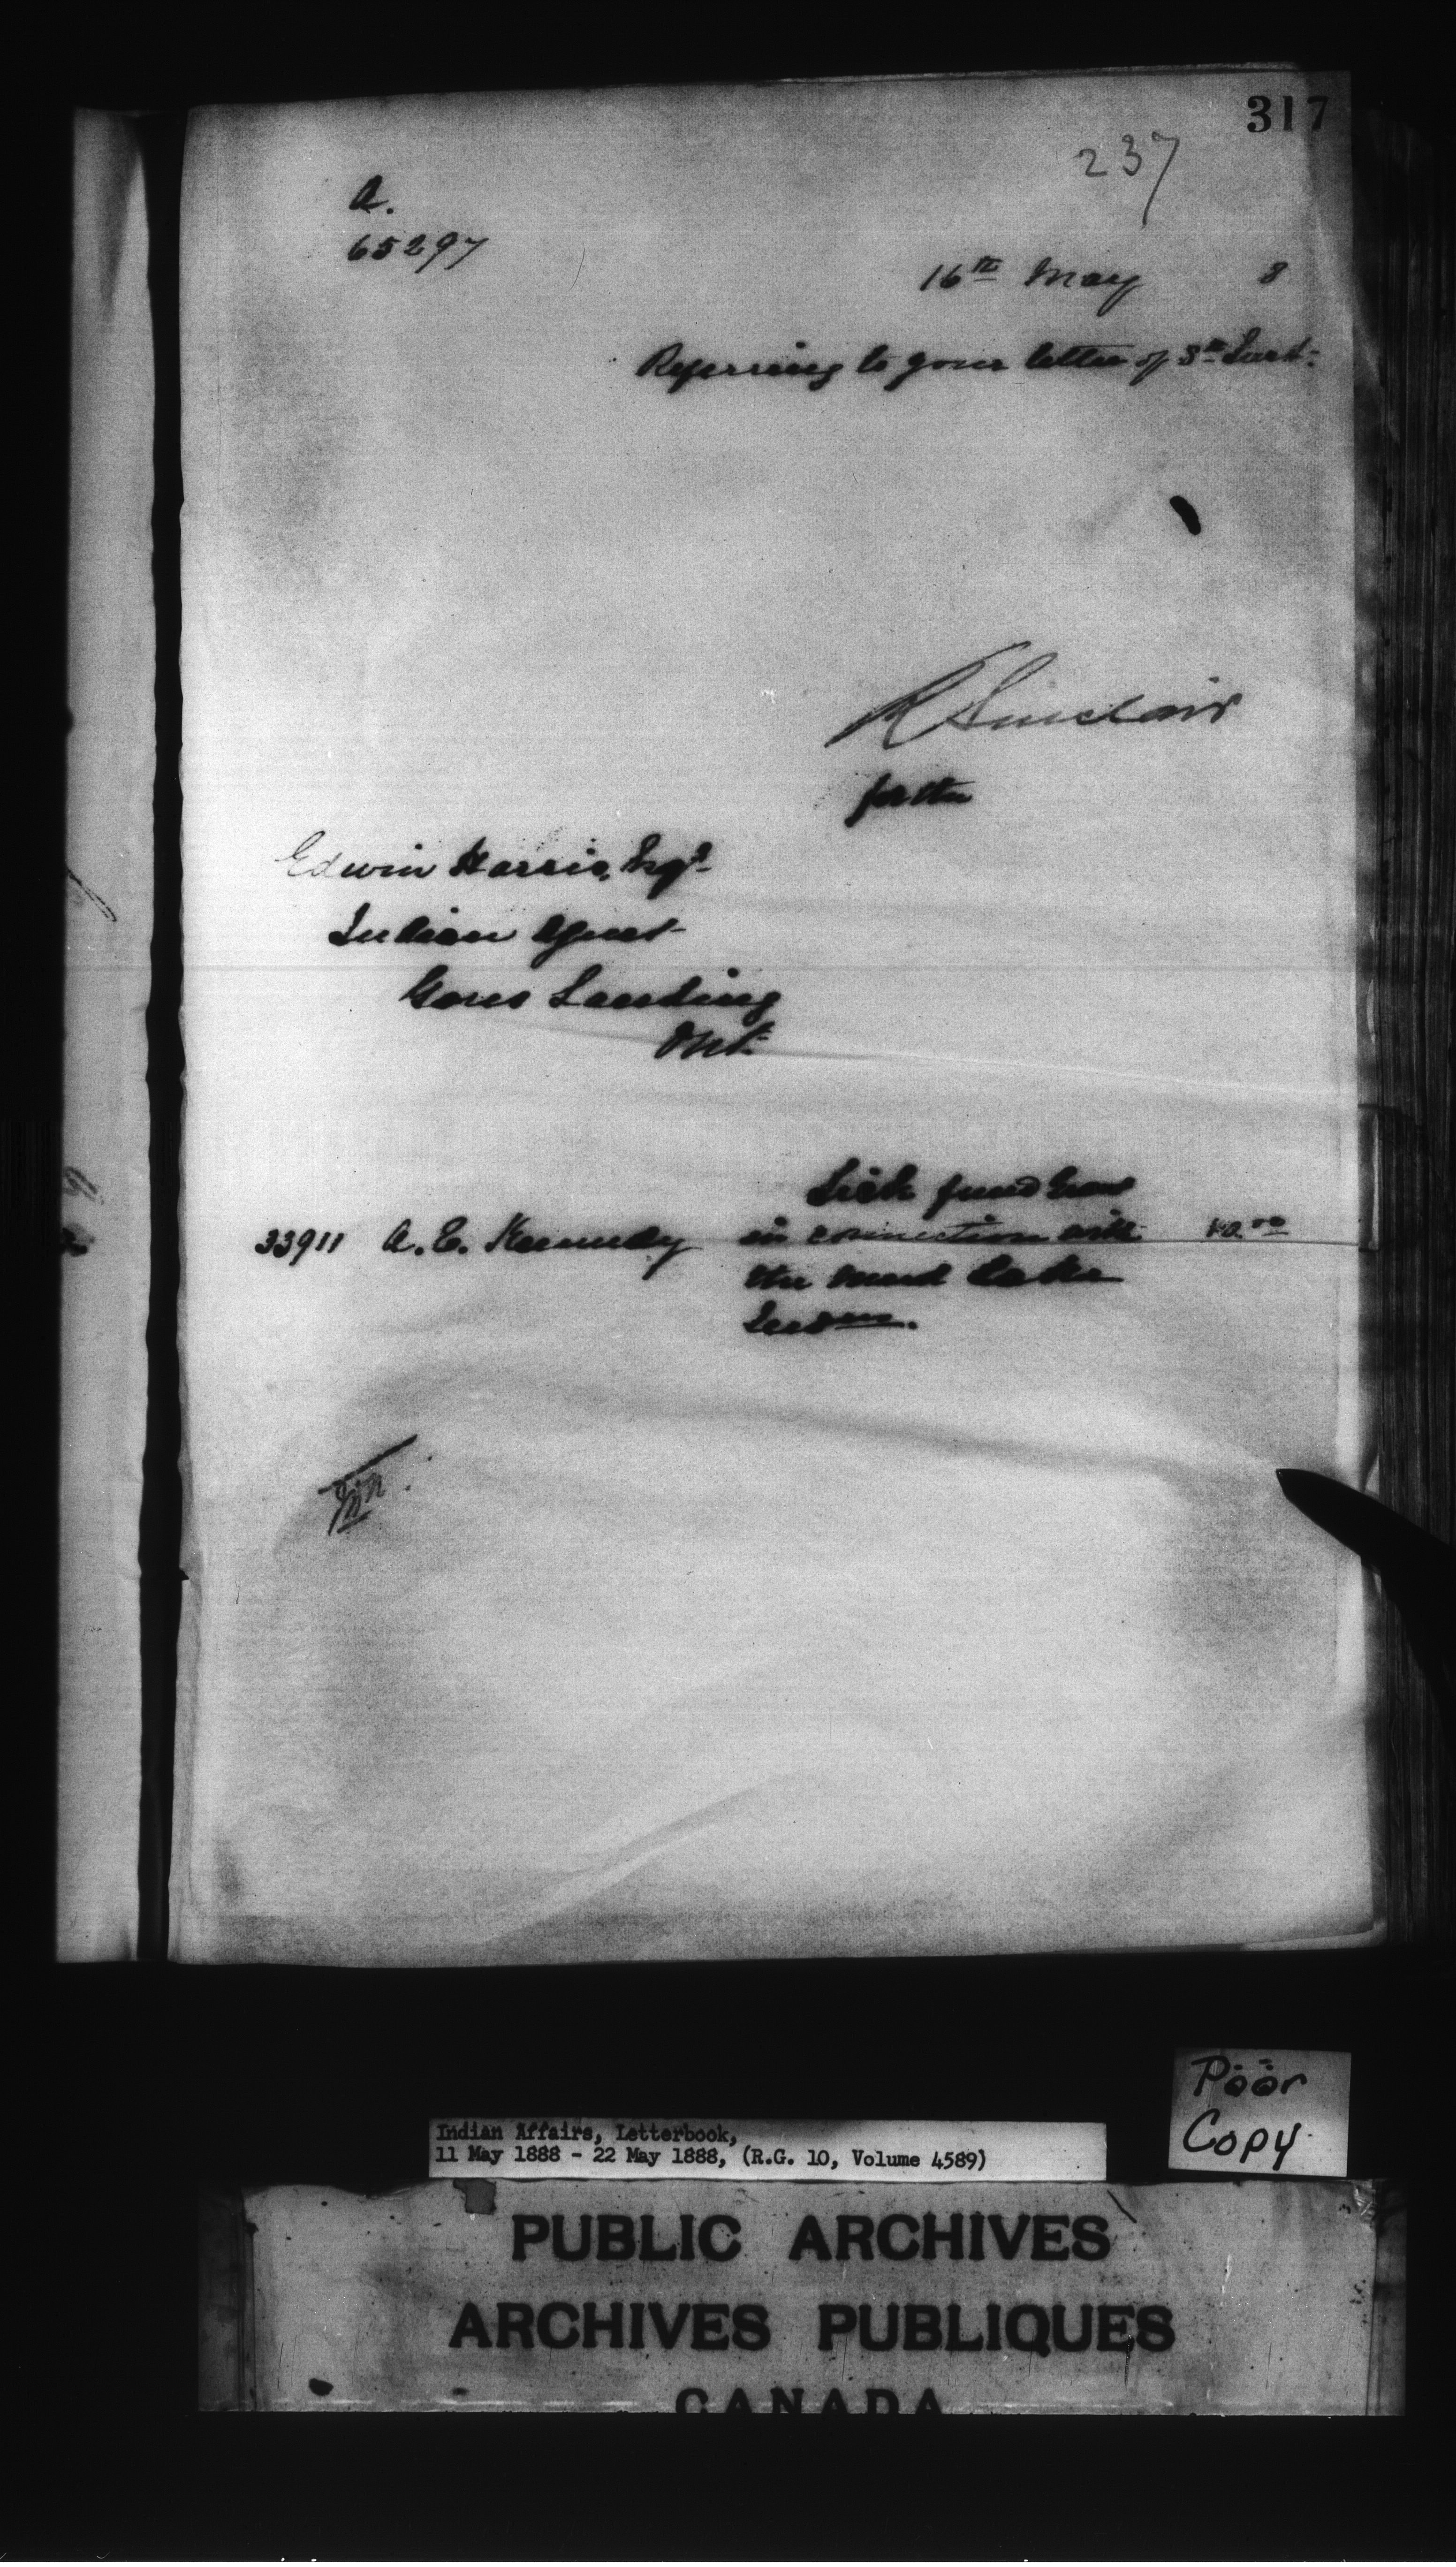 317
237
A.
65297
16th May 8
Referring to your letter of 8th Inst.
R Sinclair
for the
Edwin Harris, Esqr.
Indian Agent
Gores Landing
Ont.
33911 A. E. Kennedy
Sick fund
in connection with
the Mud Lake
Poor
Copy
Indian Affairs, Letterbook,
11 May 1888 - 22 May 1888, (R.G. 10, Volume 4589)
PUBLIC ARCHIVES
ARCHIVES PUBLIQUES
CANADA